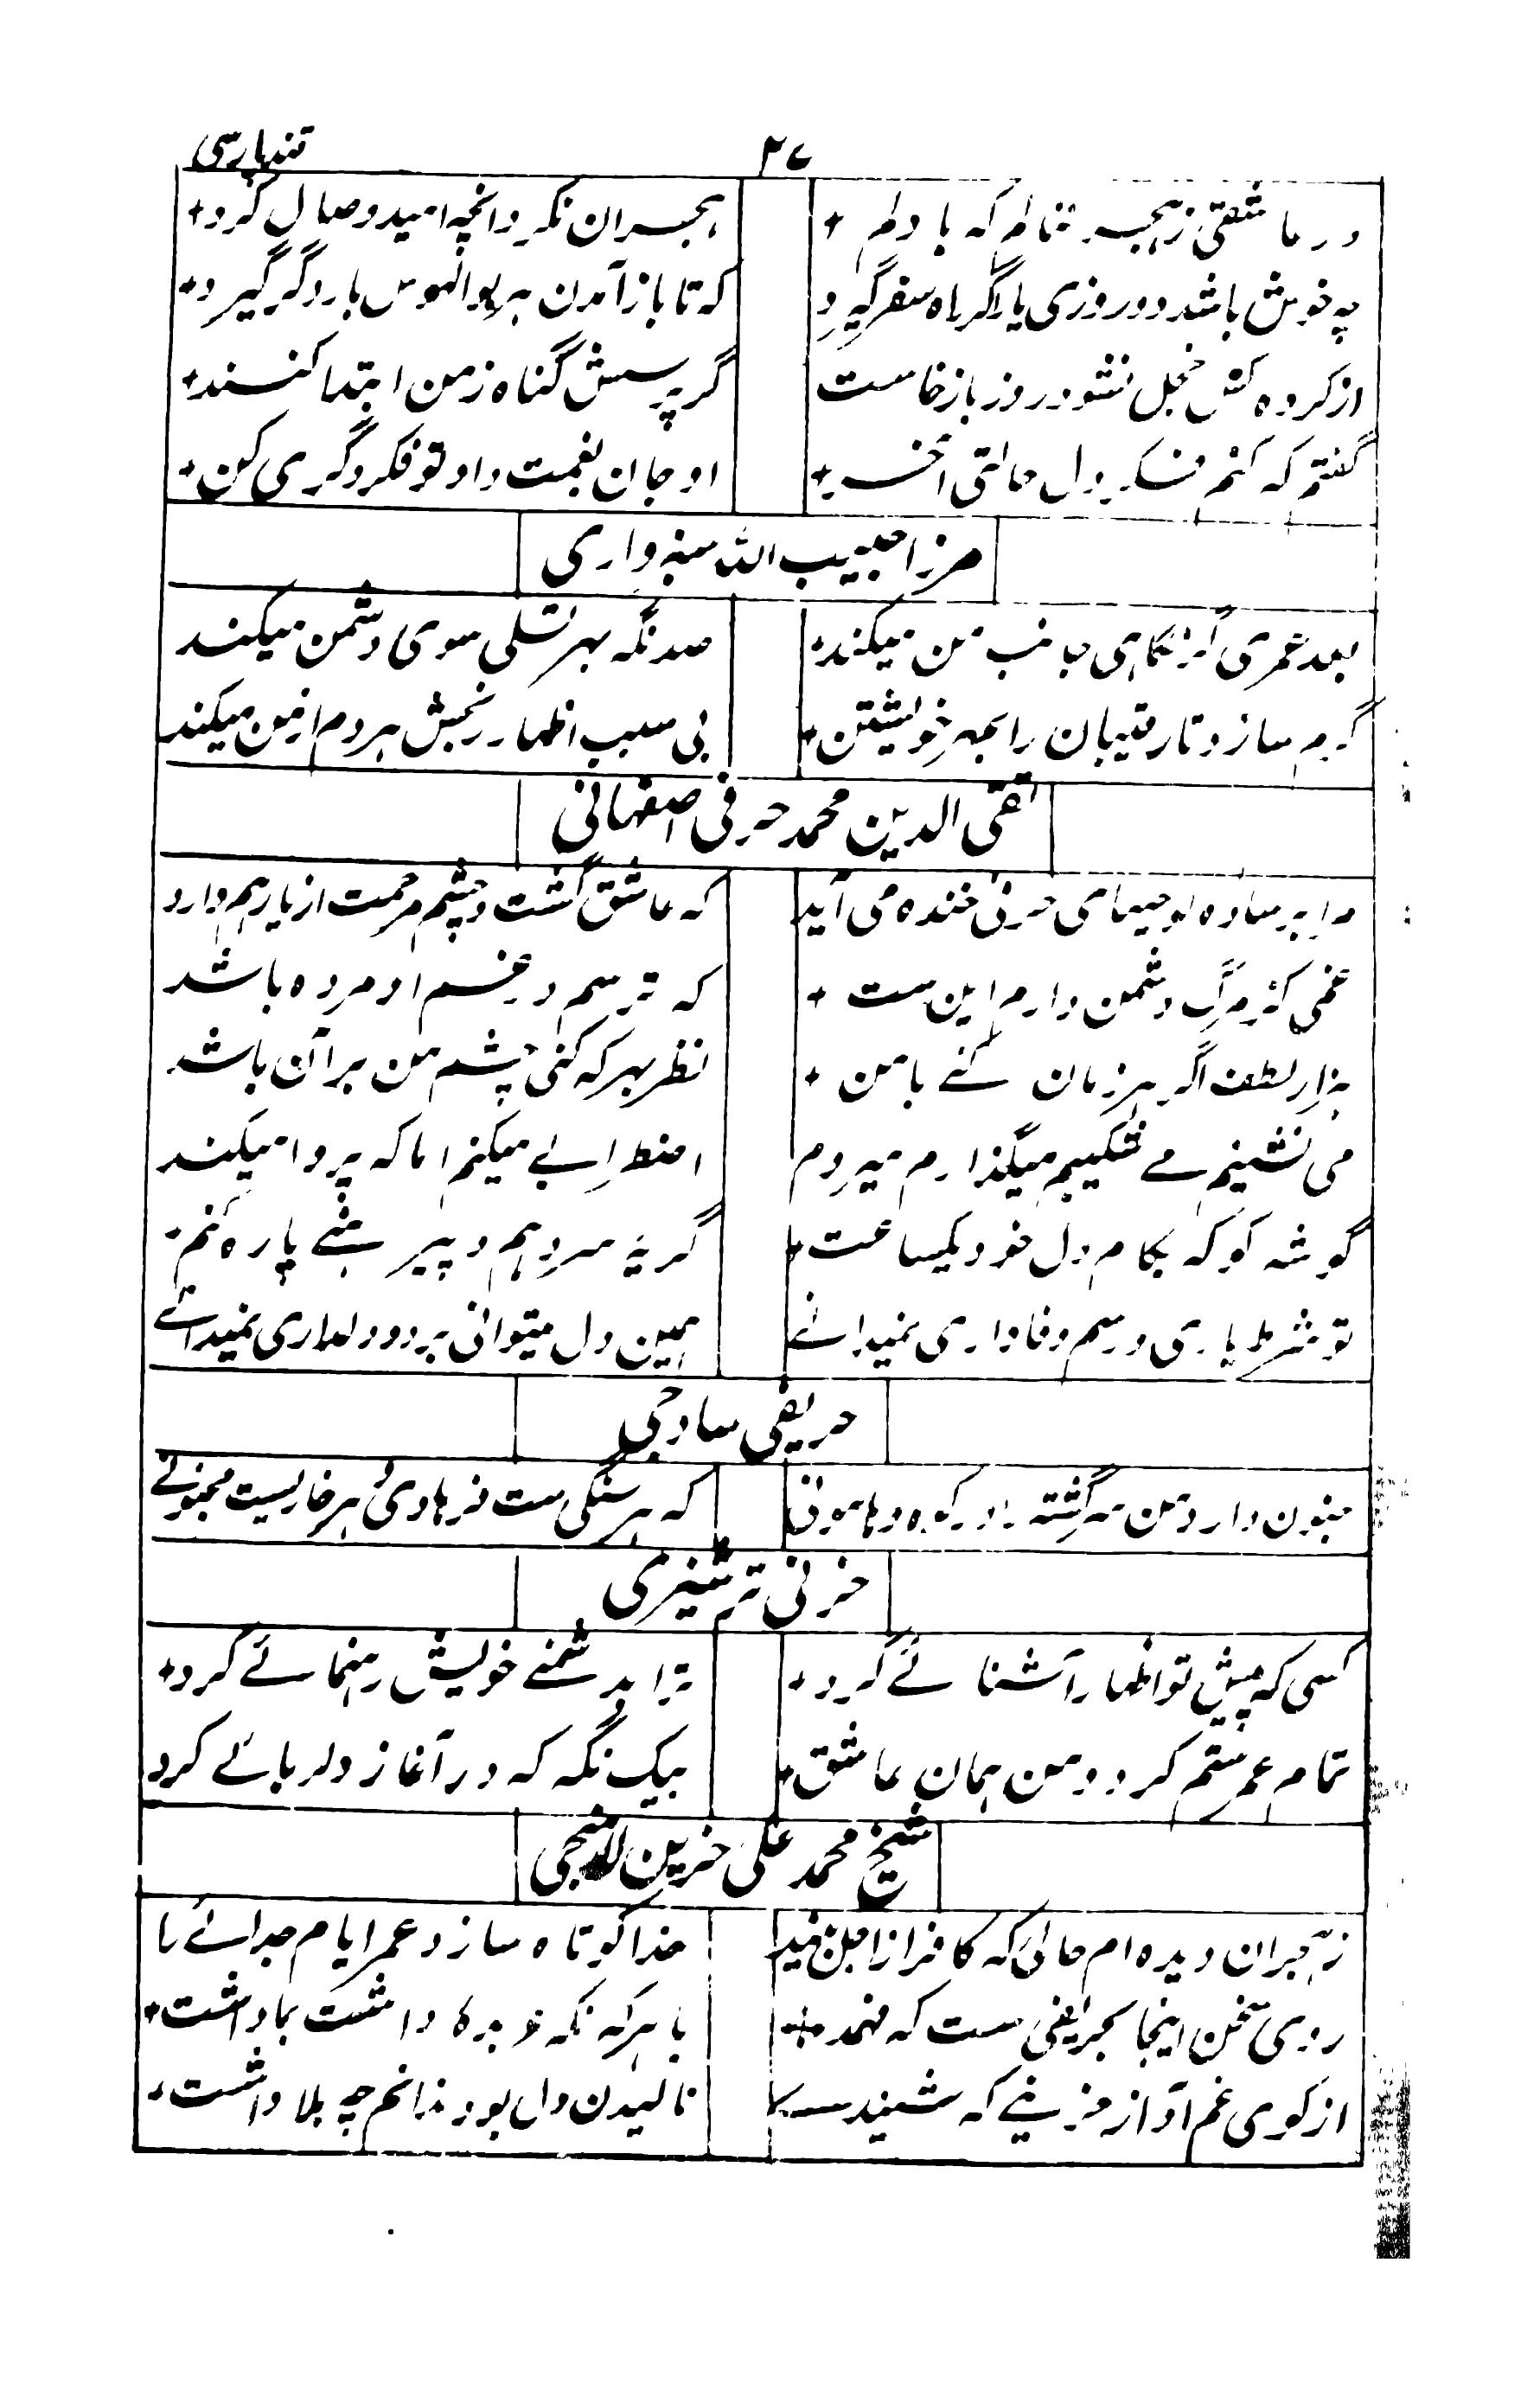 قند پارسی ۲۷
در عاشقی ز هجر ننالم که با دلم + هجران نکرد آنچه امید وصال کرد +
چه خوش باشد دو روزی یار اگر راه سفر گیرد که تا باز آمدن هر بوالهوس یار دگر گیرد +
از کرده کس خجل نشود روز بازخاست گر پرسش گناه ز من ابتدا کنند +
گفتم که کنم فکر دل حالتی آخر + او جان بغمت داد تو فکر دگری کن +
مرزا حبیب الله سبزواری
بعد عمری گر نگاهی جانب من میکند + صد نگه بهر تسلی سوی دشمن میکند
گرم سازد تا رقیبان را بمهر خویشتن + بی سبب اظهار رنجش هردم از من میکند
تقی الدین محمد حرفی اصفهانی
مرا بر ساده لوحیهای حرفی خنده می آید که عاشق گشت و چشم مرحمت از یار هم دارد
غمی کز مرگ دشمن دارم این ست + که ترسم در غم او مرده باشد
هزار لطف اگر هر زمان کنے با من + نظر بهر که کنی چشم من بر آن باشد
می نشینم مے شکیبم میگذارم میروم اضطرابے میکنم اما که پروا میکند
گوشه کو که بکام دل خود یکساعت + گریه سر دهم و پیرهنے پاره کنم
تو شرط یاری و رسم وفاداری نمیدانے همین دل میتوانی برد و دلداری نمیدانے
حریفی ساوجی
جنون دارد من سرگشته را در کوه و هامونی که هر سنگی ست فرهادی و هر خاریست مجنونے
حزنی ترشیزی
کسی که پیش تو اظهار آشنائے کرد + ترا بدشمنے خویش رهنمائے کرد +
تمام عمر ستم کرد و من همان عاشق + بیک نگه که در آغاز دلربائے کرد
شیخ محمد علی حزین لاهیجی
ز هجران دیده ام حالی که کافر از اجل بیند خدا کوتاه سازد عمر ایام جدائے را
روی سخن اینجا بحریفی ست که فهمد + با هرکه نگه عربده ها داشت بما داشت +
از کوی غم آواز حزینے که شنیدے نالیدن دل بود ندانم چه بلا داشت